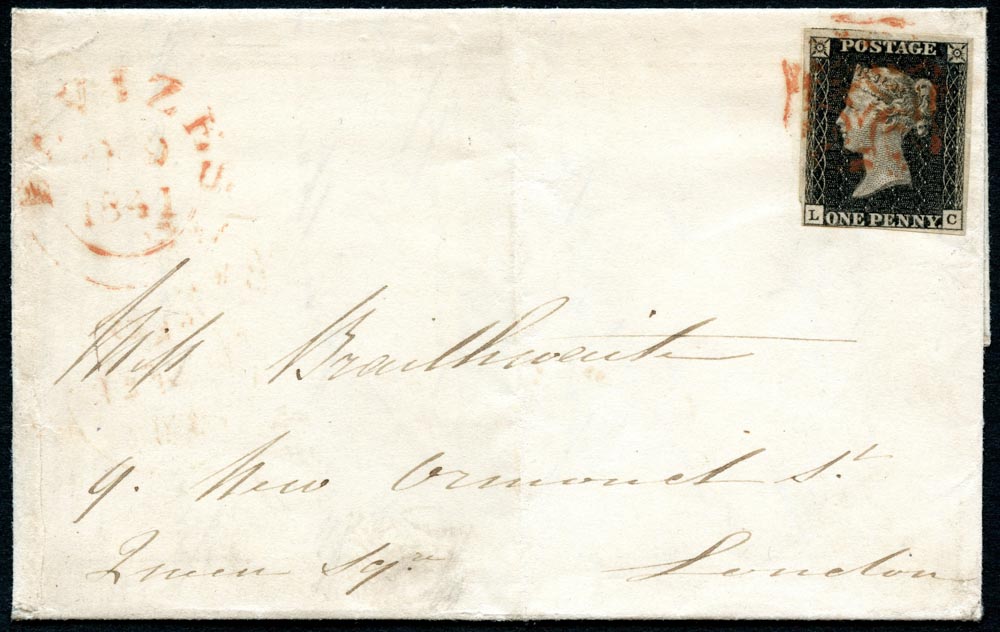 DEVIZES
1841
POSTAGE
ONE PENNY.
L C
Miss Braithwaite
9. New Ormond St.
Queen Sqre London